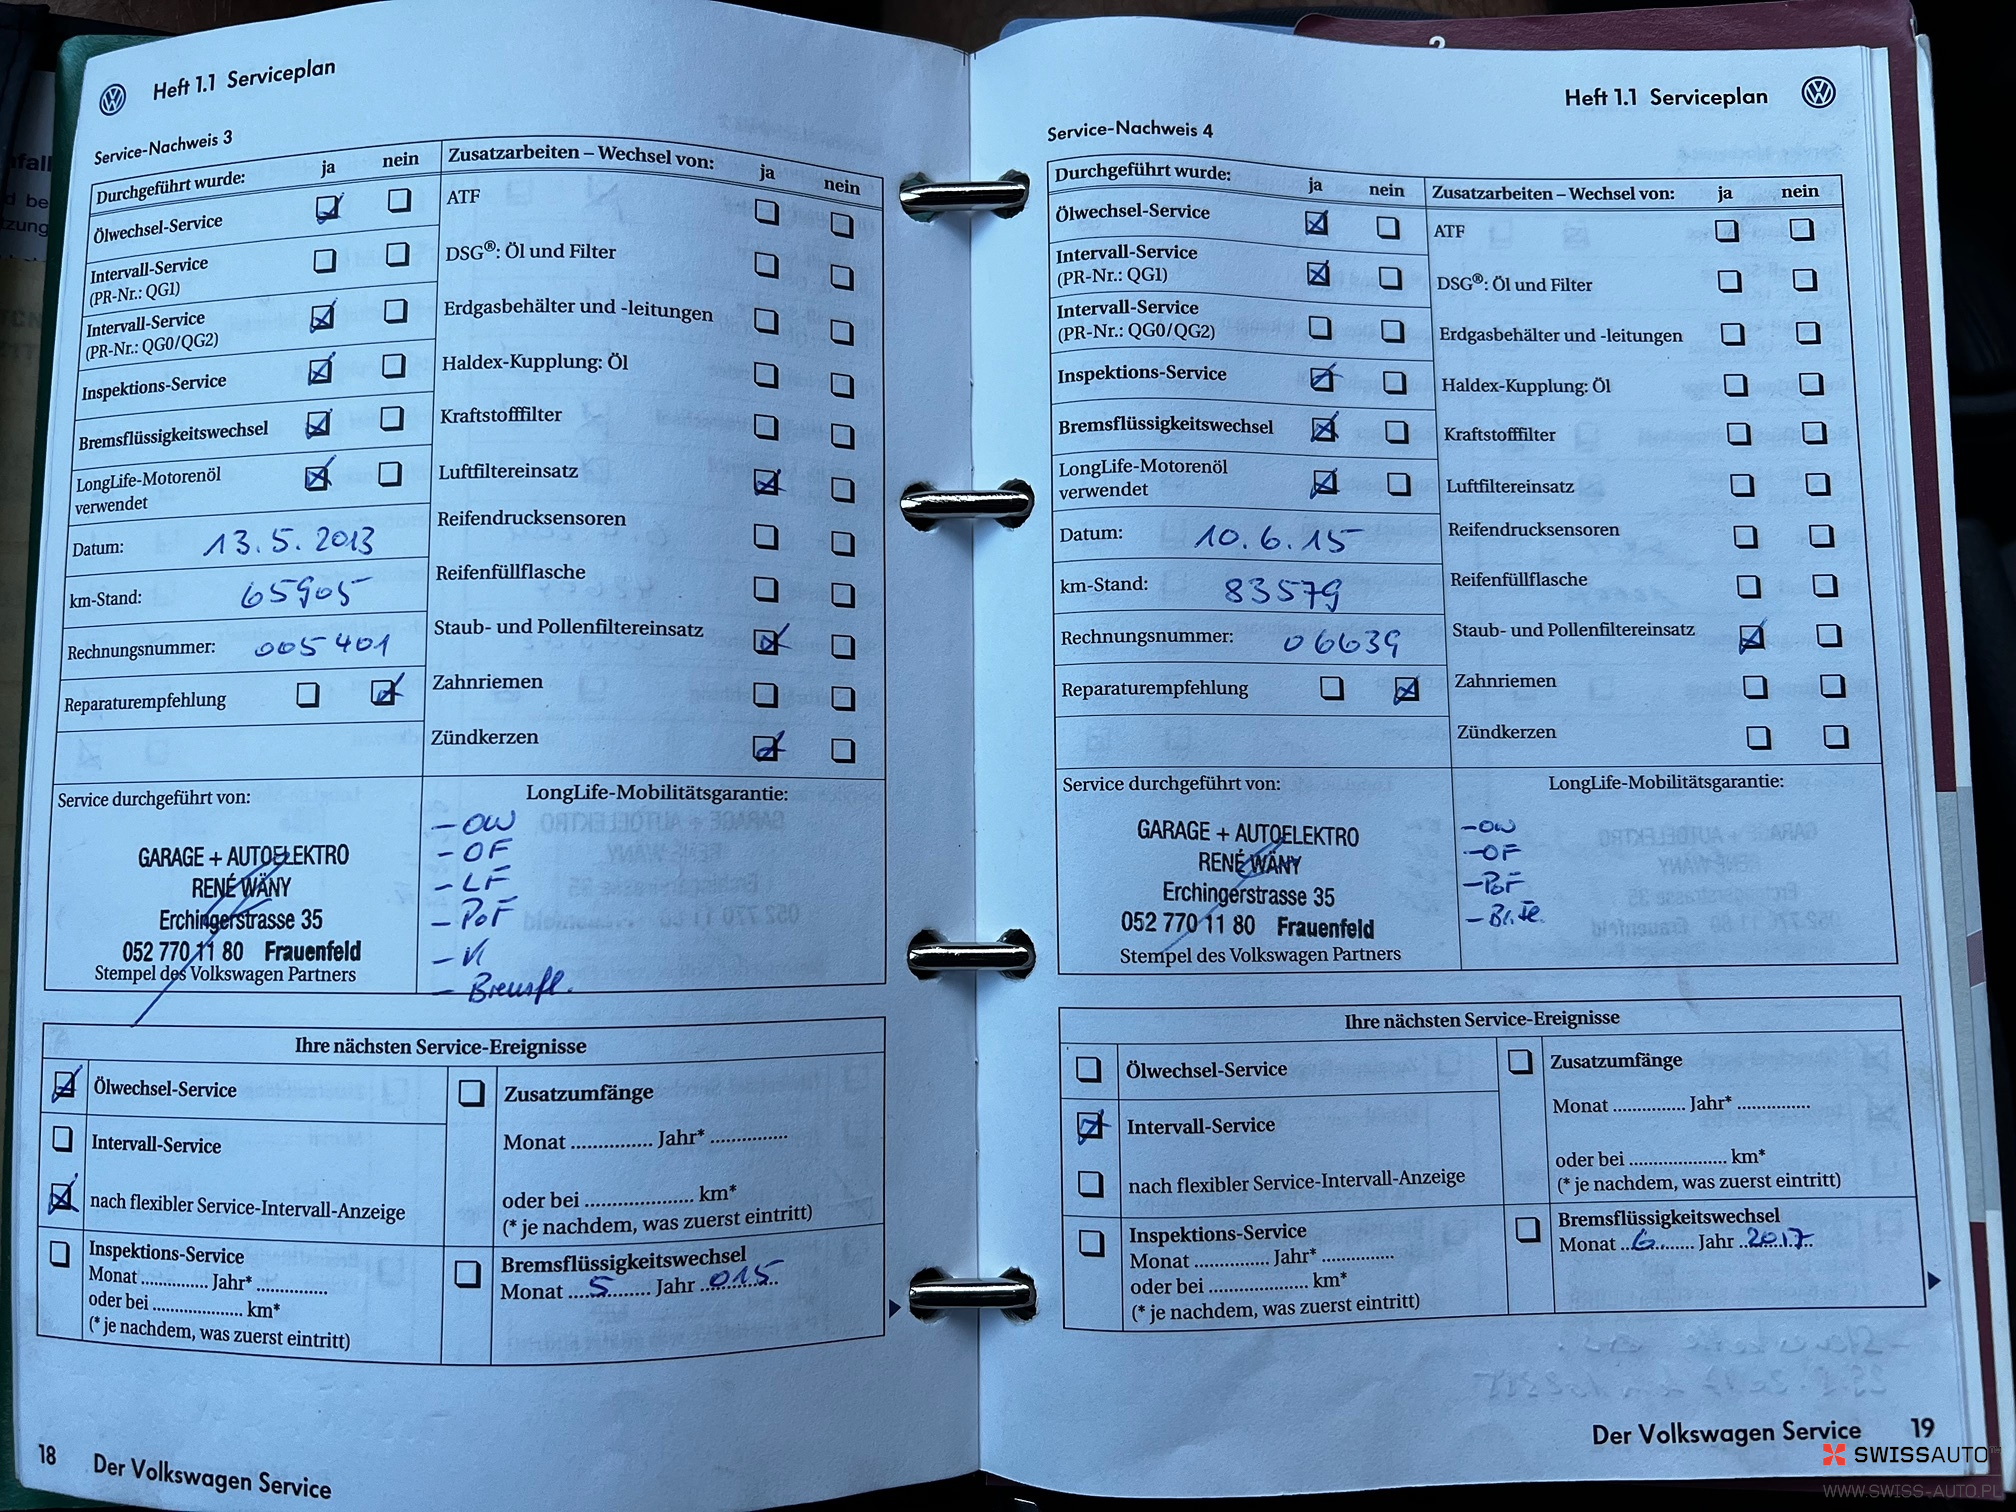 Heft 1.1 Serviceplan
Service-Nachweis 3
Durchgeführt wurde: ja nein
Ölwechsel-Service
Intervall-Service
(PR-Nr.: QG1)
Intervall-Service
(PR-Nr.: QG0/QG2)
Inspektions-Service
Bremsflüssigkeitswechsel
LongLife-Motorenöl
verwendet
Datum: 13.5.2013
km-Stand: 65905
Rechnungsnummer: 005401
Reparaturempfehlung
Zusatzarbeiten – Wechsel von: ja nein
ATF
DSG®: Öl und Filter
Erdgasbehälter und -leitungen
Haldex-Kupplung: Öl
Kraftstofffilter
Luftfiltereinsatz
Reifendrucksensoren
Reifenfüllflasche
Staub- und Pollenfiltereinsatz
Zahnriemen
Zündkerzen
Service durchgeführt von:
GARAGE + AUTOELEKTRO
RENÉ WÄNY
Erchingerstrasse 35
052 770 11 80 Frauenfeld
Stempel des Volkswagen Partners
LongLife-Mobilitätsgarantie:
- OW
- OF
- LF
- PoF
- Bremsfl.
Ihre nächsten Service-Ereignisse
Ölwechsel-Service
Intervall-Service
nach flexibler Service-Intervall-Anzeige
Inspektions-Service
Monat .............. Jahr* ..............
oder bei .................. km*
(* je nachdem, was zuerst eintritt)
Zusatzumfänge
Monat ............... Jahr* ..............
oder bei .................... km*
(* je nachdem, was zuerst eintritt)
Bremsflüssigkeitswechsel
Monat 5 Jahr 015
18 Der Volkswagen Service
2
Heft 1.1 Serviceplan
Service-Nachweis 4
Durchgeführt wurde: ja nein
Ölwechsel-Service
Intervall-Service
(PR-Nr.: QG1)
Intervall-Service
(PR-Nr.: QG0/QG2)
Inspektions-Service
Bremsflüssigkeitswechsel
LongLife-Motorenöl
verwendet
Datum: 10.6.15
km-Stand: 83579
Rechnungsnummer: 06639
Reparaturempfehlung
Zusatzarbeiten – Wechsel von: ja nein
ATF
DSG®: Öl und Filter
Erdgasbehälter und -leitungen
Haldex-Kupplung: Öl
Kraftstofffilter
Luftfiltereinsatz
Reifendrucksensoren
Reifenfüllflasche
Staub- und Pollenfiltereinsatz
Zahnriemen
Zündkerzen
Service durchgeführt von:
GARAGE + AUTOELEKTRO
RENÉ WÄNY
Erchingerstrasse 35
052 770 11 80 Frauenfeld
Stempel des Volkswagen Partners
LongLife-Mobilitätsgarantie:
- OW
- OF
- PoF
Ihre nächsten Service-Ereignisse
Ölwechsel-Service
Intervall-Service
nach flexibler Service-Intervall-Anzeige
Inspektions-Service
Monat .............. Jahr* ..............
oder bei .................. km*
(* je nachdem, was zuerst eintritt)
Zusatzumfänge
Monat ............... Jahr* ..............
oder bei .................... km*
(* je nachdem, was zuerst eintritt)
Bremsflüssigkeitswechsel
Monat 6 Jahr 2017
Der Volkswagen Service 19
SWISSAUTO
WWW.SWISS-AUTO.PL